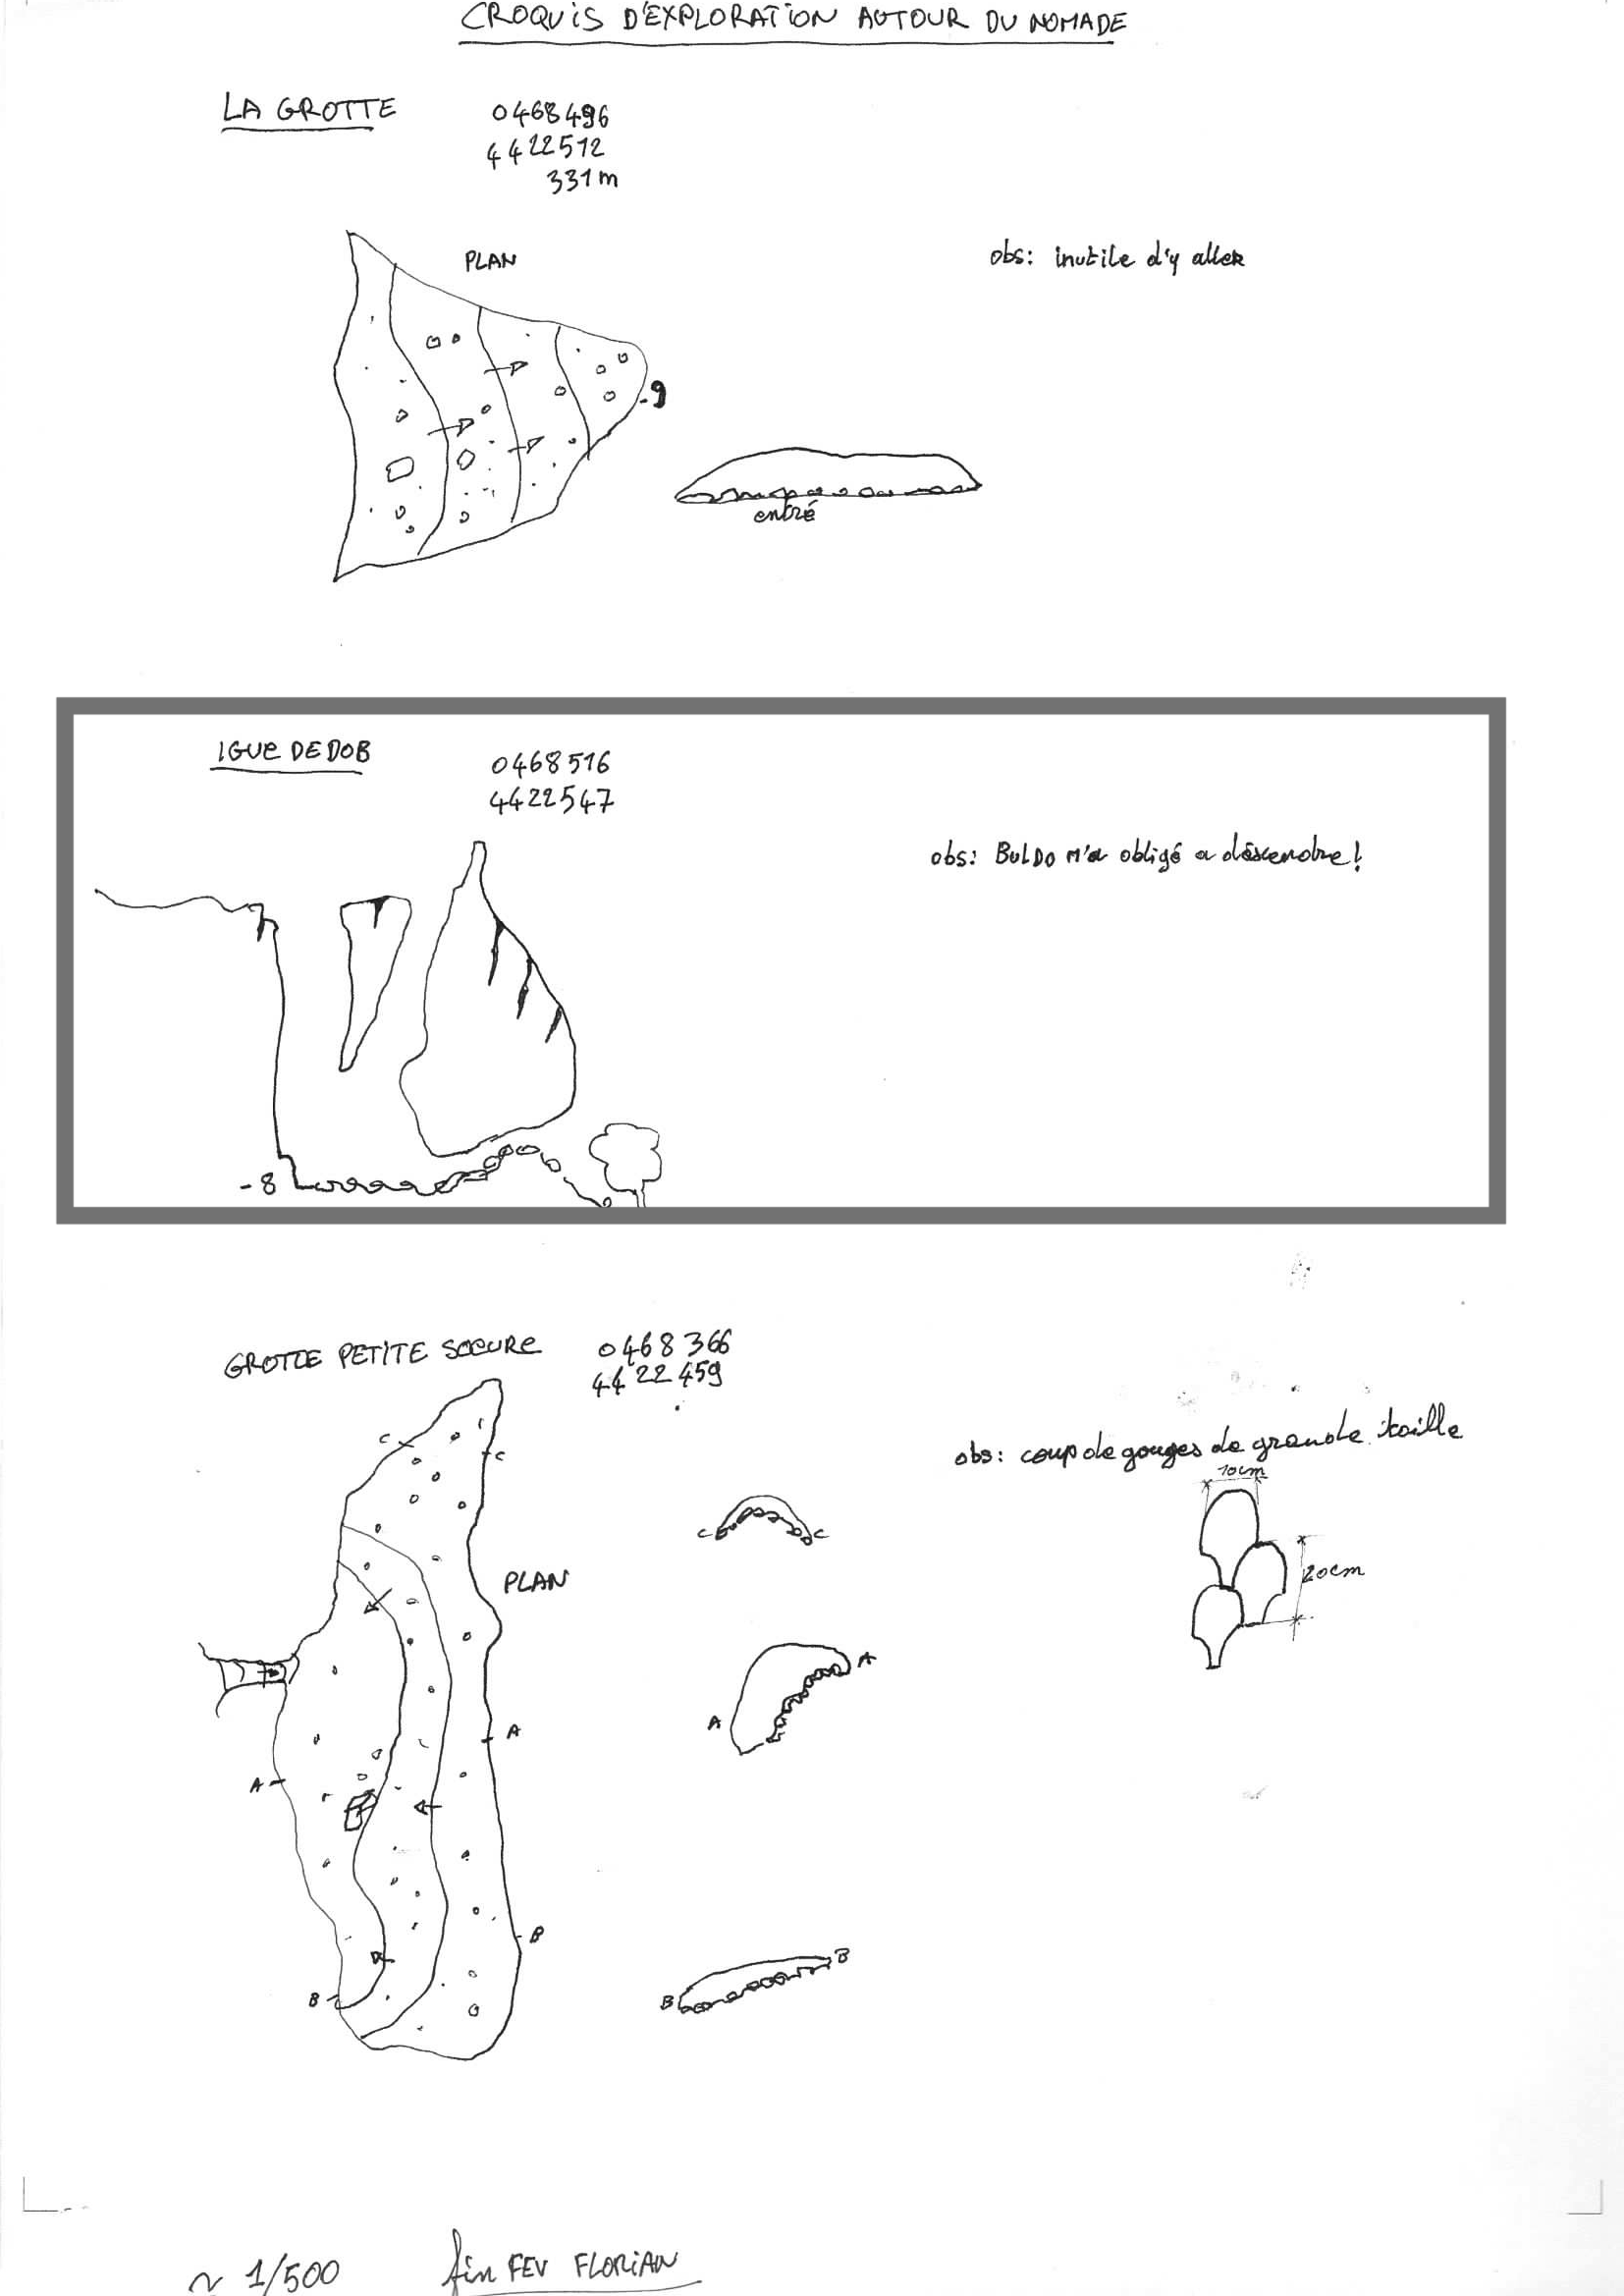 CROQUIS D'EXPLORATION AUTOUR DU NOMADE
LA GROTTE
0468496
4422512
331m
PLAN
obs: inutile d'y aller
-9
entré
IGUE DE DOB
0468516
4422547
obs: BULDO M'a obligé a déscendre!
-8
GROTTE PETITE SOEURE
0468366
4422459
obs: coup de gouges de grande taille
10cm
C
C
C
C
PLAN
20cm
A
A
A
A
B
B
B
B
~ 1/500
fin FEV FLORIAN